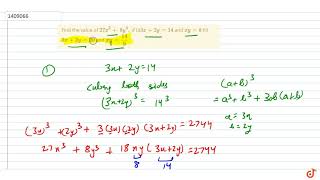 1409066
Find the value of 27x³ + 8y³, if (i)3x + 2y = 14 and xy = 8 (ii)
① 3x + 2y = 14
cubing both sides
(3x+2y)³ = 14³
(a+b)³
= a³ + b³ + 3ab(a+b)
a = 3x
b = 2y
(3x)³ + (2y)³ + 3(3x)(2y)(3x+2y) = 2744
27x³ + 8y³ + 18xy(3x+2y) = 2744
8 14